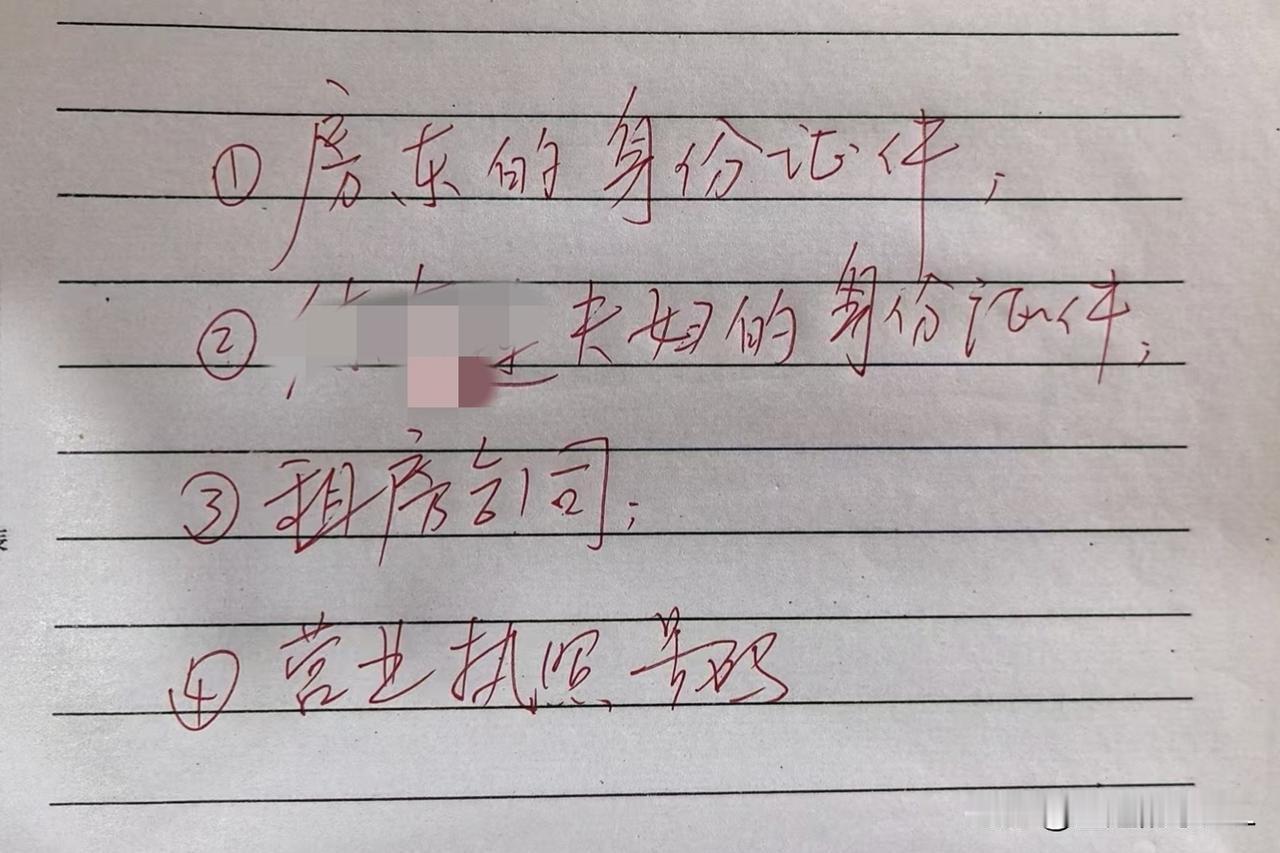 ①房东的身份证件；
②夫妇的身份证件；
③租房合同；
④营业执照